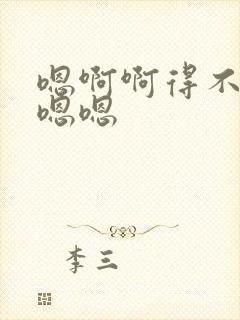 嗯啊啊得不
嗯嗯
李三